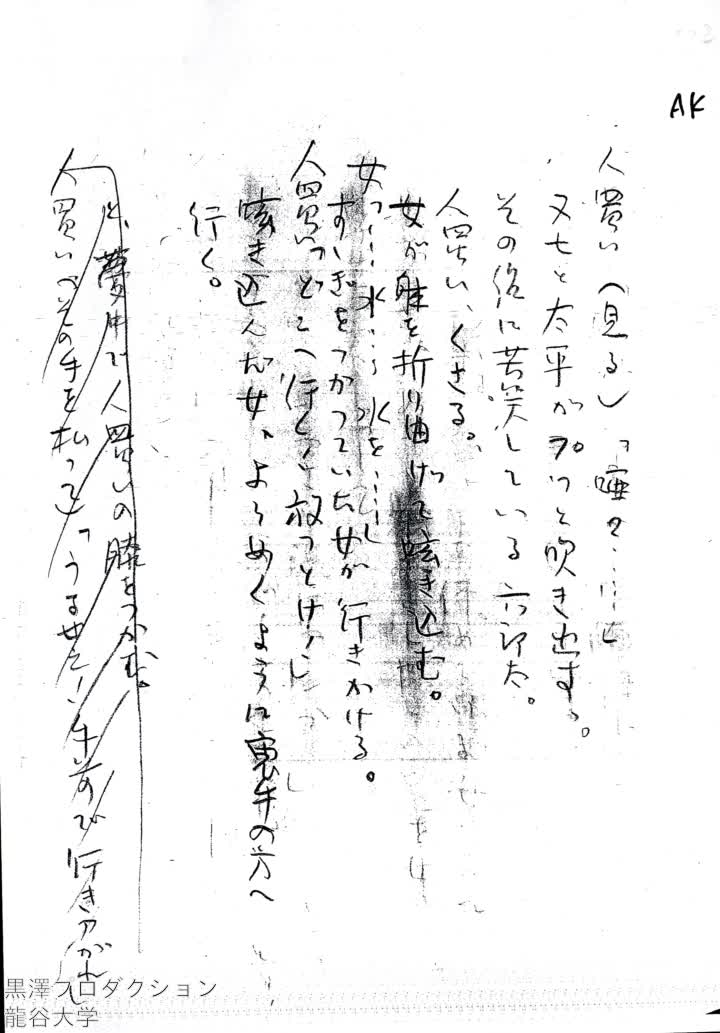 AK
人買い（見る）「唖？……」
又七と太平がプッと吹き出す。
その後に苦笑している六郎太。
人買い、くさる。
女が躰を折り曲げて咳き込む。
女「……水……水を……」
すゝぎをつかっていた女が行きかける。
人買い「どこへ行く、放っとけ！」
咳き込んだ女、よろめくように裏手の方へ
行く。
女、夢中で人買いの膝をつかむ。
人買い（その手を払って）「うるせえ！手前で行きアがれ」
黒澤プロダクション
龍谷大学